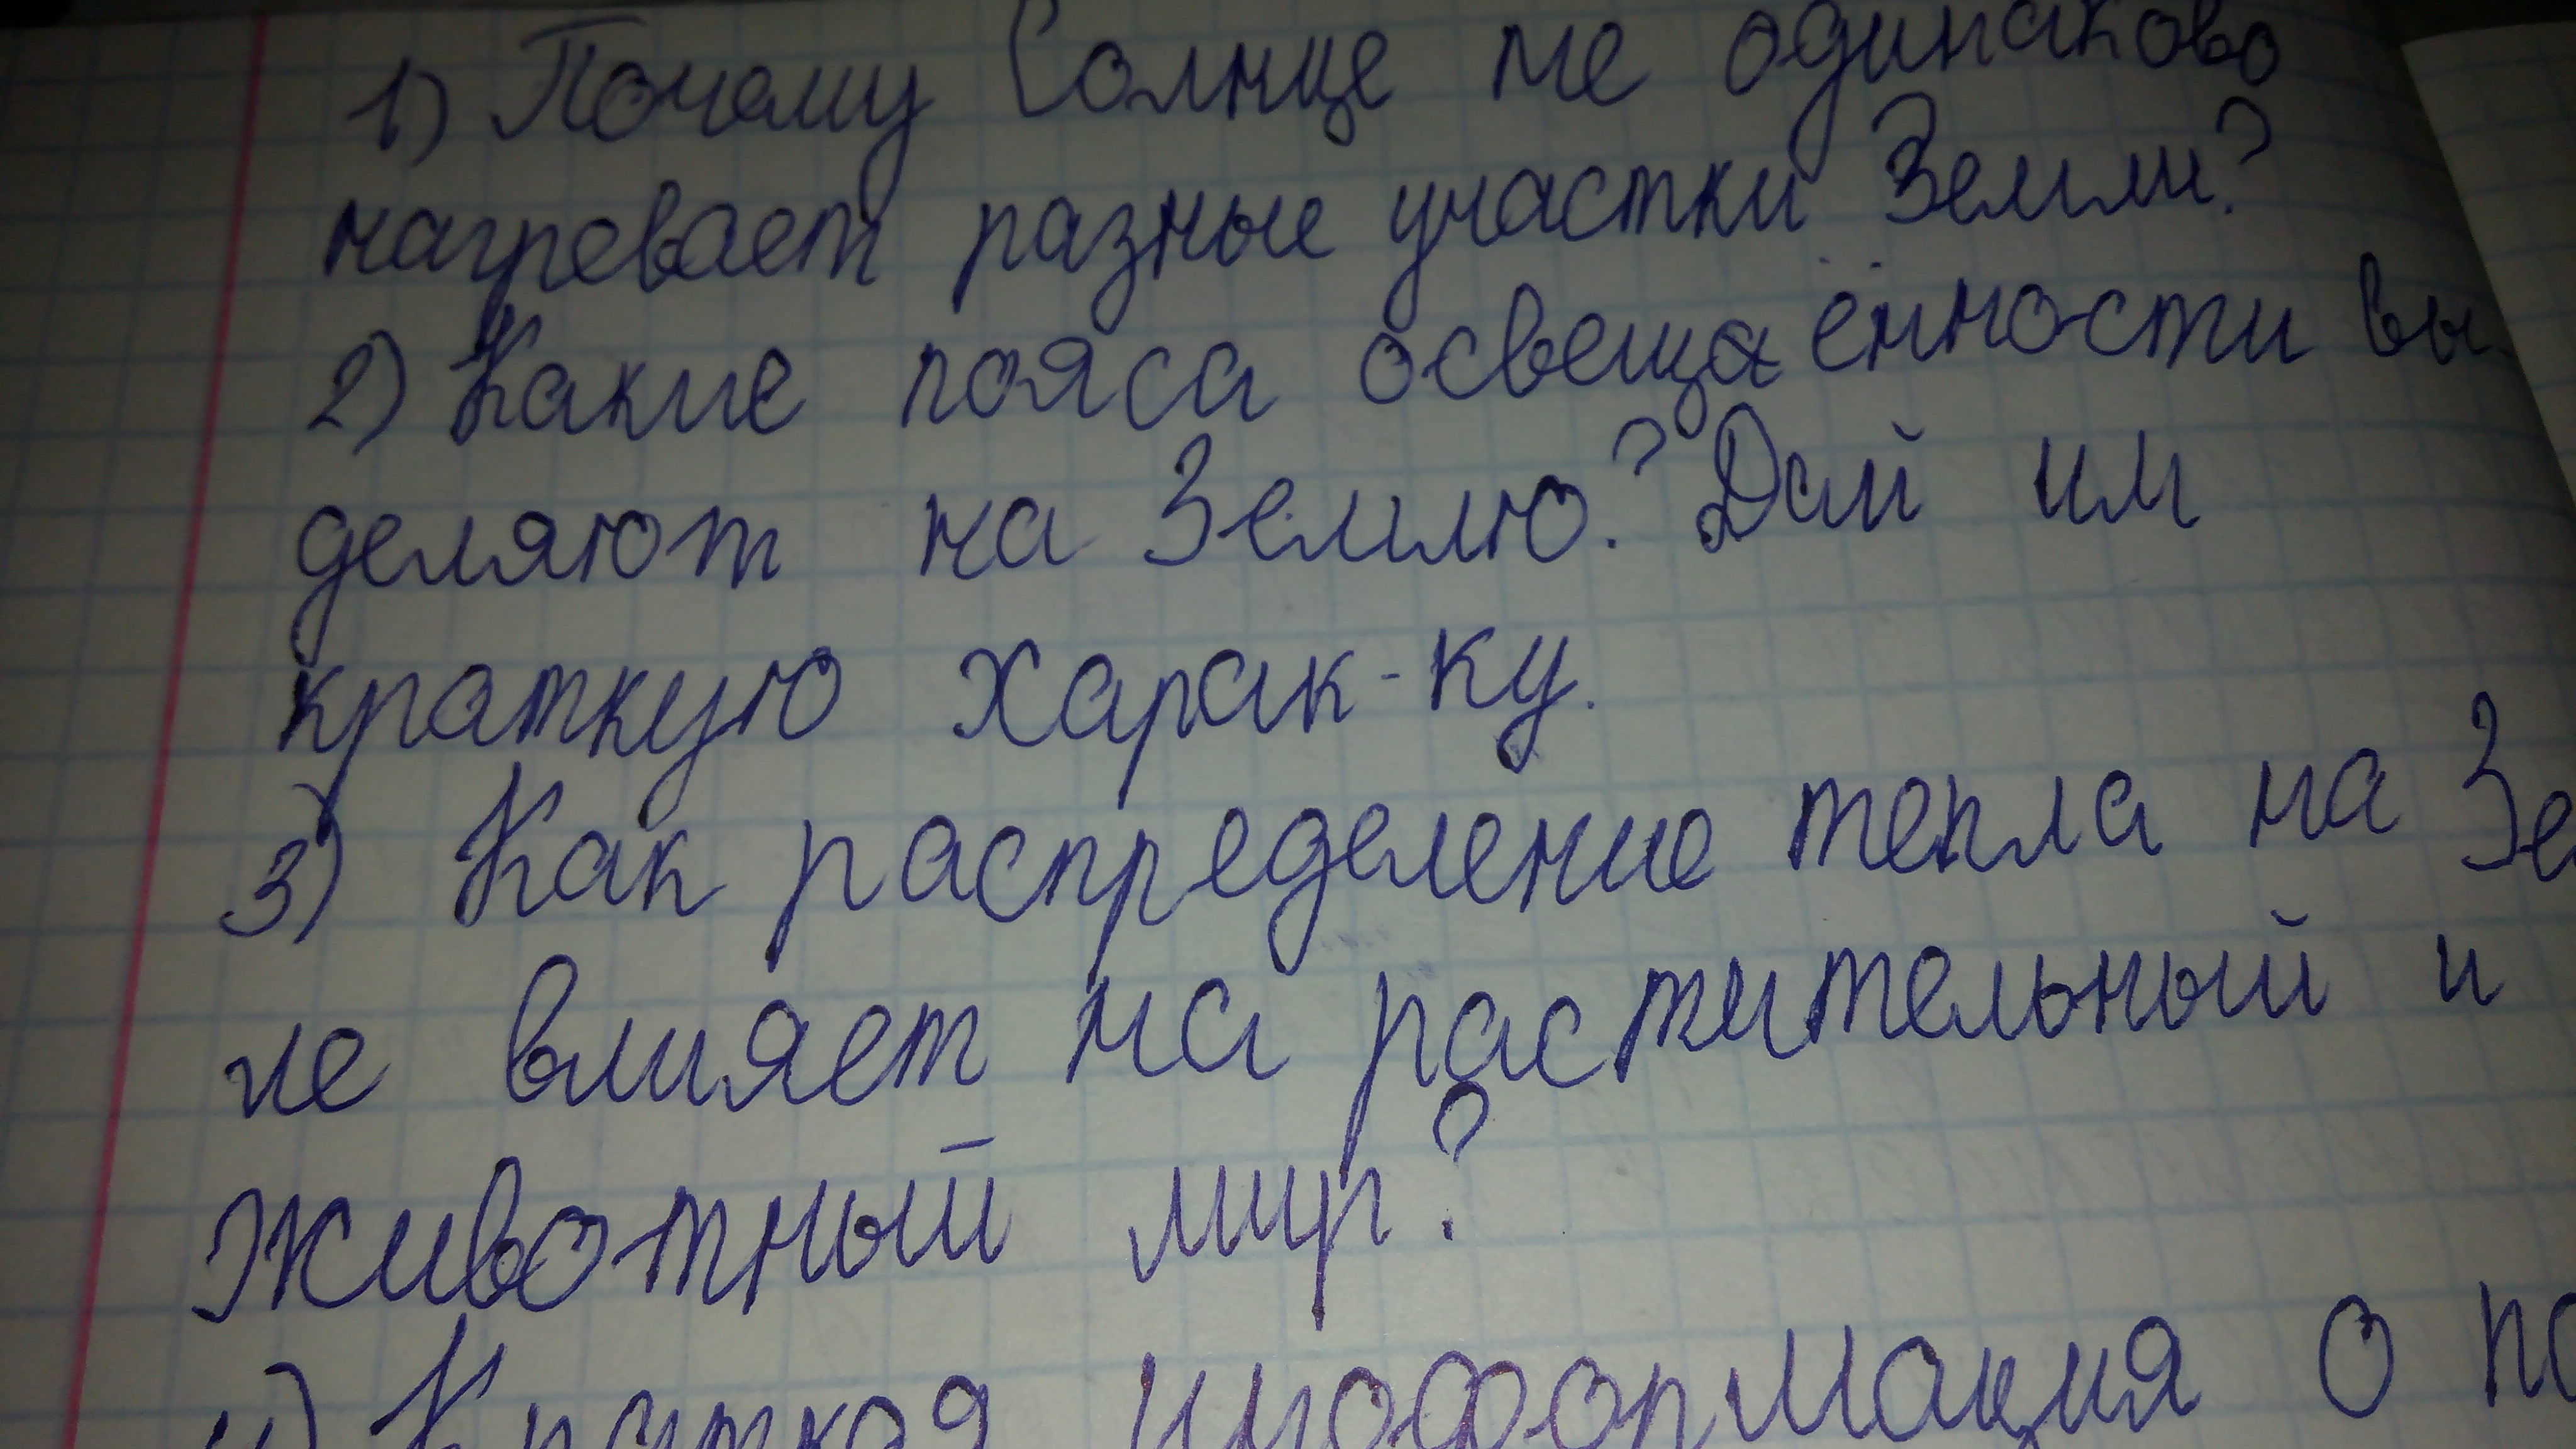 1) Почему Солнце не одинаково
нагревает разные участки Земли?
2) Какие пояса освещаённости вы-
деляют на Землю? Дай им
краткую харак-ку.
3) Как распределение тепла на Зем
ле влияет на растительный и
животный мир?
4) Краткая информация о по